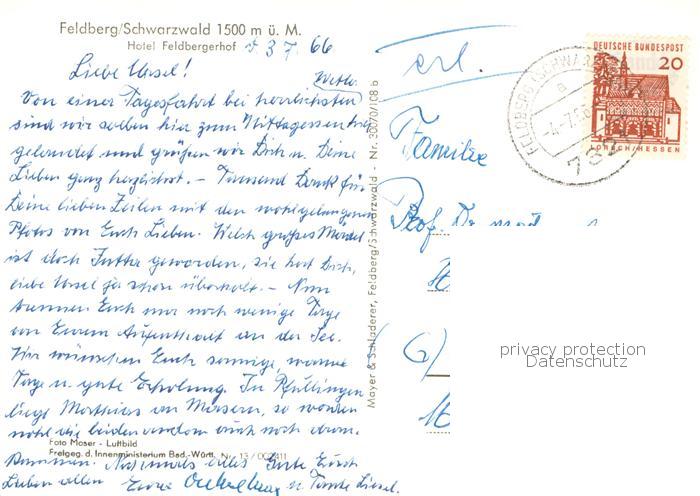 Feldberg/Schwarzwald 1500 m ü. M.
Hotel Feldbergerhof d. 3.7.66
Liebe Ursel!
Wetter
Von einer Tagesfahrt bei herrlichsten
sind wir soeben hier zum Mittagessen
gelandet und grüßen wir Dich u. Deine
Lieben ganz herzlichst. - Tausend Dank für
Deine lieben Zeilen mit den wohlgelungenen
Photos von Euch Lieben. Welch großes Mädel
ist doch Jutta geworden, sie hat Dich,
liebe Ursel ja schon überholt. - Nun
trennen Euch nur noch wenige Tage
von Eurem Aufenthalt an der See.
Wir wünschen Euch sonnige, warme
Tage u. gute Erholung. In Pfullingen
liege Matthias an Masern, so werden
wohl die beiden andern auch noch dran
kommen. Nochmals alles Gute Euch
Lieben allen Eure u. Tante Liesel.
Foto Moser - Luftbild
Freigeg. d. Innenministerium Bad.-Württ. Nr. 13/
Mayer & Saladerer, Feldberg/Schwarzwald - Nr. 300/0/108 b
erl.
Familie
Prof. Dr.
FELDBERG (SCHWARZW
a
-4.-7.66
782
DEUTSCHE BUNDESPOST
20
LORSCH/HESSEN
privacy protection
Datenschutz